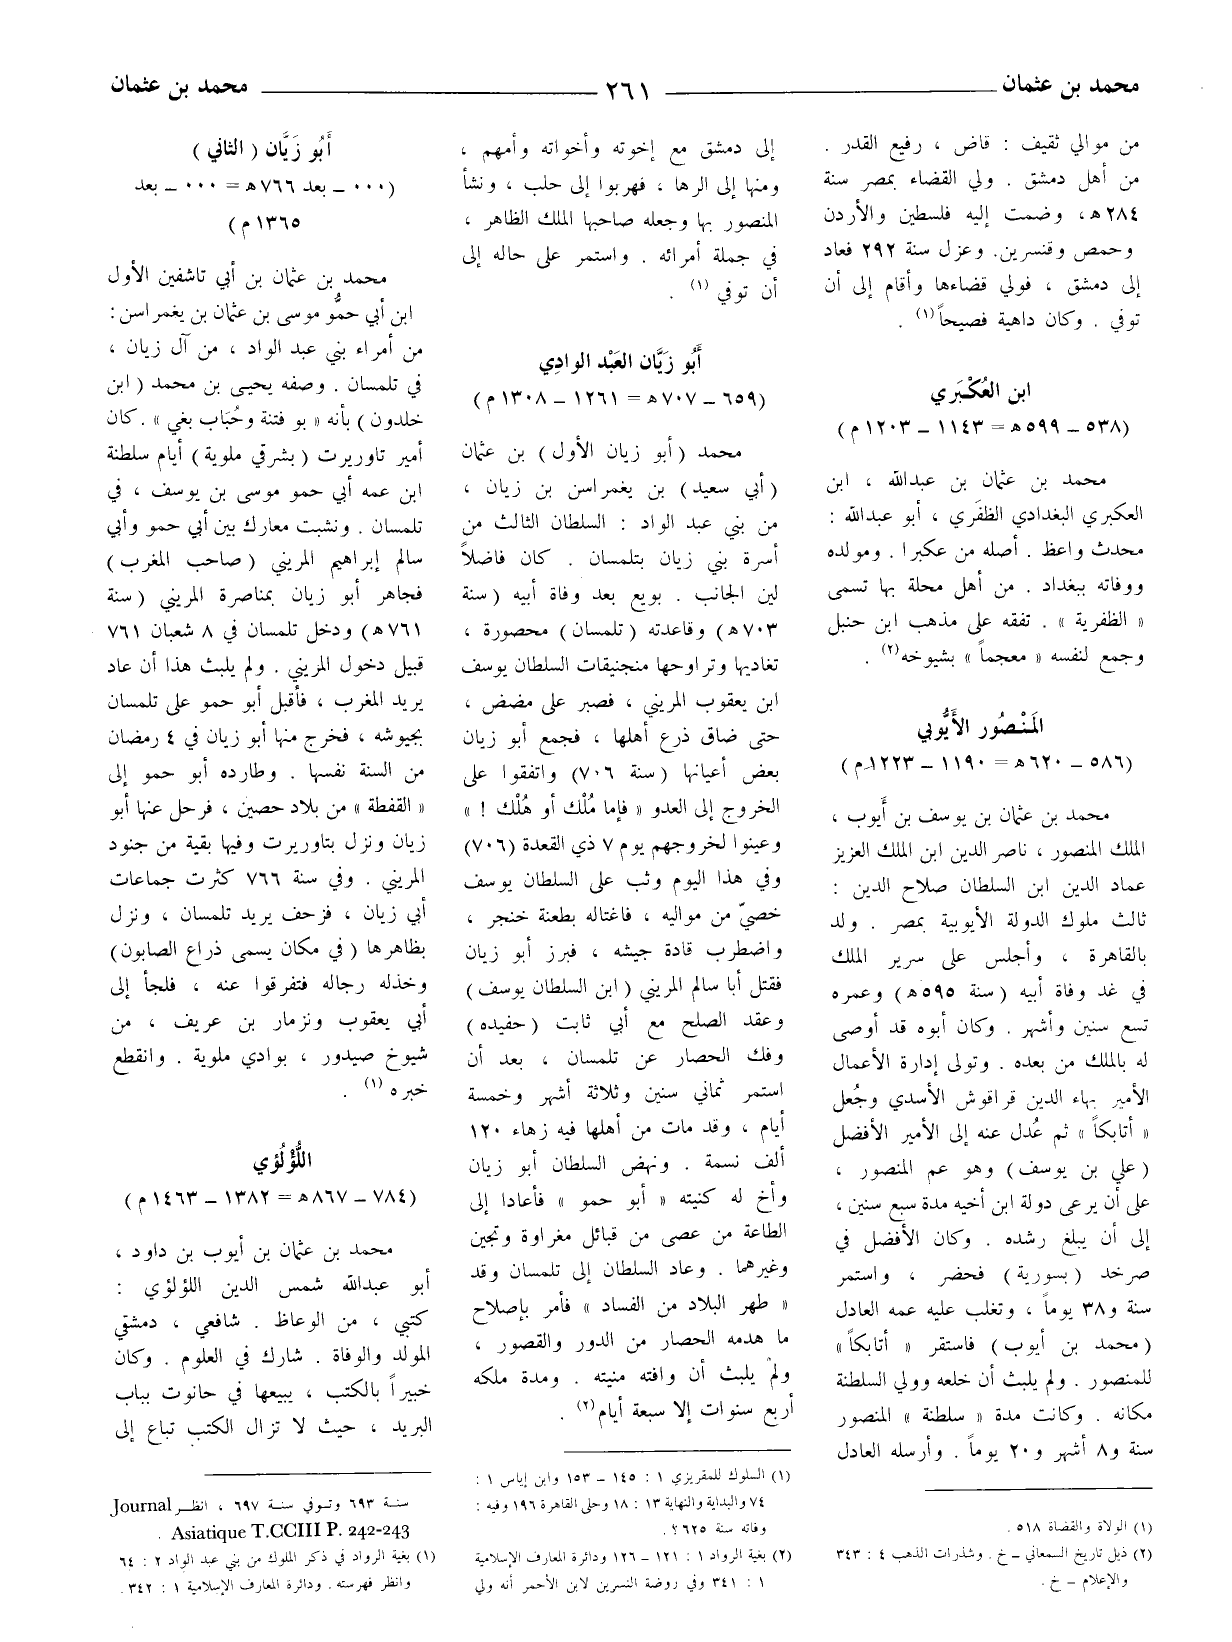 محمد بن عثمان ــــــ ٢٦١ ــــــ محمد بن عثمان
من موالي ثقيف : قاض ، رفيع القدر .
من أهل دمشق . ولي القضاء بمصر سنة
٢٨٤ هـ، وضمت إليه فلسطين والأردن
وحمص وقنسرين. وعزل سنة ٢٩٢ فعاد
إلى دمشق ، فولي قضاءها وأقام إلى أن
توفي . وكان داهية فصيحاً(١) .
ابن العُكْبَري
(٥٣٨ ــ ٥٩٩ هـ = ١١٤٣ ــ ١٢٠٣ م)
محمد بن عثمان بن عبدالله ، ابن
العكبري البغدادي الظفَري ، أبو عبدالله :
محدث واعظ . أصله من عكبرا . ومولده
ووفاته ببغداد . من أهل محلة بها تسمى
« الظفرية » . تفقه على مذهب ابن حنبل
وجمع لنفسه « معجماً » بشيوخه(٢) .
المَنْصُور الأَيُّوبي
(٥٨٦ ــ ٦٢٠ هـ = ١١٩٠ ــ ١٢٢٣ م)
محمد بن عثمان بن يوسف بن أيوب ،
الملك المنصور ، ناصر الدين ابن الملك العزيز
عماد الدين ابن السلطان صلاح الدين :
ثالث ملوك الدولة الأيوبية بمصر . ولد
بالقاهرة ، وأجلس على سرير الملك
في غد وفاة أبيه (سنة ٥٩٥ هـ) وعمره
تسع سنين وأشهر . وكان أبوه قد أوصى
له بالملك من بعده . وتولى إدارة الأعمال
الأمير بهاء الدين قراقوش الأسدي وجُعل
« أتابكاً » ثم عُدل عنه إلى الأمير الأفضل
(علي بن يوسف) وهو عم المنصور ،
على أن يرعى دولة ابن أخيه مدة سبع سنين ،
إلى أن يبلغ رشده . وكان الأفضل في
صرخد (بسورية) فحضر ، واستمر
سنة و٣٨ يوماً ، وتغلب عليه عمه العادل
(محمد بن أيوب) فاستقر « أتابكاً »
للمنصور . ولم يلبث أن خلعه وولي السلطنة
مكانه . وكانت مدة « سلطنة » المنصور
سنة و٨ أشهر و٢٠ يوماً . وأرسله العادل
(١) الولاة والقضاة ٥١٨ .
(٢) ذيل تاريخ السمعاني ــ خ . وشذرات الذهب ٤ : ٣٤٣
والإعلام ــ خ .
إلى دمشق مع إخوته وأخواته وأمهم ،
ومنها إلى الرها ، فهربوا إلى حلب ، ونشأ
المنصور بها وجعله صاحبها الملك الظاهر ،
في جملة أمرائه . واستمر على حاله إلى
أن توفي (١) .
أَبُو زَيَّان العَبْد الوادِي
(٦٥٩ ــ ٧٠٧ هـ = ١٢٦١ ــ ١٣٠٨ م)
محمد (أبو زيان الأول) بن عثمان
(أبي سعيد) بن يغمراسن بن زيان ،
من بني عبد الواد : السلطان الثالث من
أسرة بني زيان بتلمسان . كان فاضلاً
لين الجانب . بويع بعد وفاة أبيه (سنة
٧٠٣ هـ) وقاعدته (تلمسان) محصورة ،
تغاديها وتراوحها منجنيقات السلطان يوسف
ابن يعقوب المريني ، فصبر على مضض ،
حتى ضاق ذرع أهلها ، فجمع أبو زيان
بعض أعيانها (سنة ٧٠٦) واتفقوا على
الخروج إلى العدو « فإما مُلْك أو هُلْك ! »
وعينوا لخروجهم يوم ٧ ذي القعدة (٧٠٦)
وفي هذا اليوم وثب على السلطان يوسف
خصيّ من مواليه ، فاغتاله بطعنة خنجر ،
واضطرب قادة جيشه ، فبرز أبو زيان
فقتل أبا سالم المريني (ابن السلطان يوسف)
وعقد الصلح مع أبي ثابت (حفيده)
وفك الحصار عن تلمسان ، بعد أن
استمر ثماني سنين وثلاثة أشهر وخمسة
أيام ، وقد مات من أهلها فيه زهاء ١٢٠
ألف نسمة . ونهض السلطان أبو زيان
وأخ له كنيته « أبو حمو » فأعادا إلى
الطاعة من عصى من قبائل مغراوة وتجين
وغيرهما . وعاد السلطان إلى تلمسان وقد
« طهر البلاد من الفساد » فأمر بإصلاح
ما هدمه الحصار من الدور والقصور ،
ولم يلبث أن وافته منيته . ومدة ملكه
أربع سنوات إلا سبعة أيام(٢) .
(١) السلوك للمقريزي ١ : ١٤٥ ــ ١٥٣ وابن إياس ١ :
٧٤ والبداية والنهاية ١٣ : ١٨ وحلى القاهرة ١٩٦ وفيه :
وفاته سنة ٦٢٥ ؟.
(٢) بغية الرواد ١ : ١٢١ ــ ١٢٦ ودائرة المعارف الإسلامية
١ : ٣٤١ وفي روضة النسرين لابن الأحمر أنه ولي
أَبُو زَيَّان (الثاني)
(٠٠٠ ــ بعد ٧٦٦ هـ = ٠٠٠ ــ بعد
١٣٦٥ م)
محمد بن عثمان بن أبي تاشفين الأول
ابن أبي حمُّو موسى بن عثمان بن يغمراسن :
من أمراء بني عبد الواد ، من آل زيان ،
في تلمسان . وصفه يحيى بن محمد (ابن
خلدون) بأنه « بو فتنة وحُبَاب بغي ». كان
أمير تاوريرت (بشرقي ملوية) أيام سلطنة
ابن عمه أبي حمو موسى بن يوسف ، في
تلمسان . ونشبت معارك بين أبي حمو وأبي
سالم إبراهيم المريني (صاحب المغرب)
فجاهر أبو زيان بمناصرة المريني (سنة
٧٦١ هـ) ودخل تلمسان في ٨ شعبان ٧٦١
قبيل دخول المريني . ولم يلبث هذا أن عاد
يريد المغرب ، فأقبل أبو حمو على تلمسان
بجيوشه ، فخرج منها أبو زيان في ٤ رمضان
من السنة نفسها . وطارده أبو حمو إلى
« القفطة » من بلاد حصين ، فرحل عنها أبو
زيان ونزل بتاوريرت وفيها بقية من جنود
المريني . وفي سنة ٧٦٦ كثرت جماعات
أبي زيان ، فزحف يريد تلمسان ، ونزل
بظاهرها (في مكان يسمى ذراع الصابون)
وخذله رجاله فتفرقوا عنه ، فلجأ إلى
أبي يعقوب ونزمار بن عريف ، من
شيوخ صيدور ، بوادي ملوية . وانقطع
خبره (١) .
اللُّؤْلُؤي
(٧٨٤ ــ ٨٦٧ هـ = ١٣٨٢ ــ ١٤٦٣ م)
محمد بن عثمان بن أيوب بن داود ،
أبو عبدالله شمس الدين اللؤلؤي :
كتبي ، من الوعاظ . شافعي ، دمشقي
المولد والوفاة . شارك في العلوم . وكان
خبيراً بالكتب ، يبيعها في حانوت بباب
البريد ، حيث لا تزال الكتب تباع إلى
سنة ٦٩٣ وتوفي سنة ٦٩٧ ، انظر Journal
Asiatique T.CCIII P. 242-243 .
(١) بغية الرواد في ذكر الملوك من بني عبد الواد ٢ : ٦٤
وانظر فهرسته . ودائرة المعارف الإسلامية ١ : ٣٤٢ .